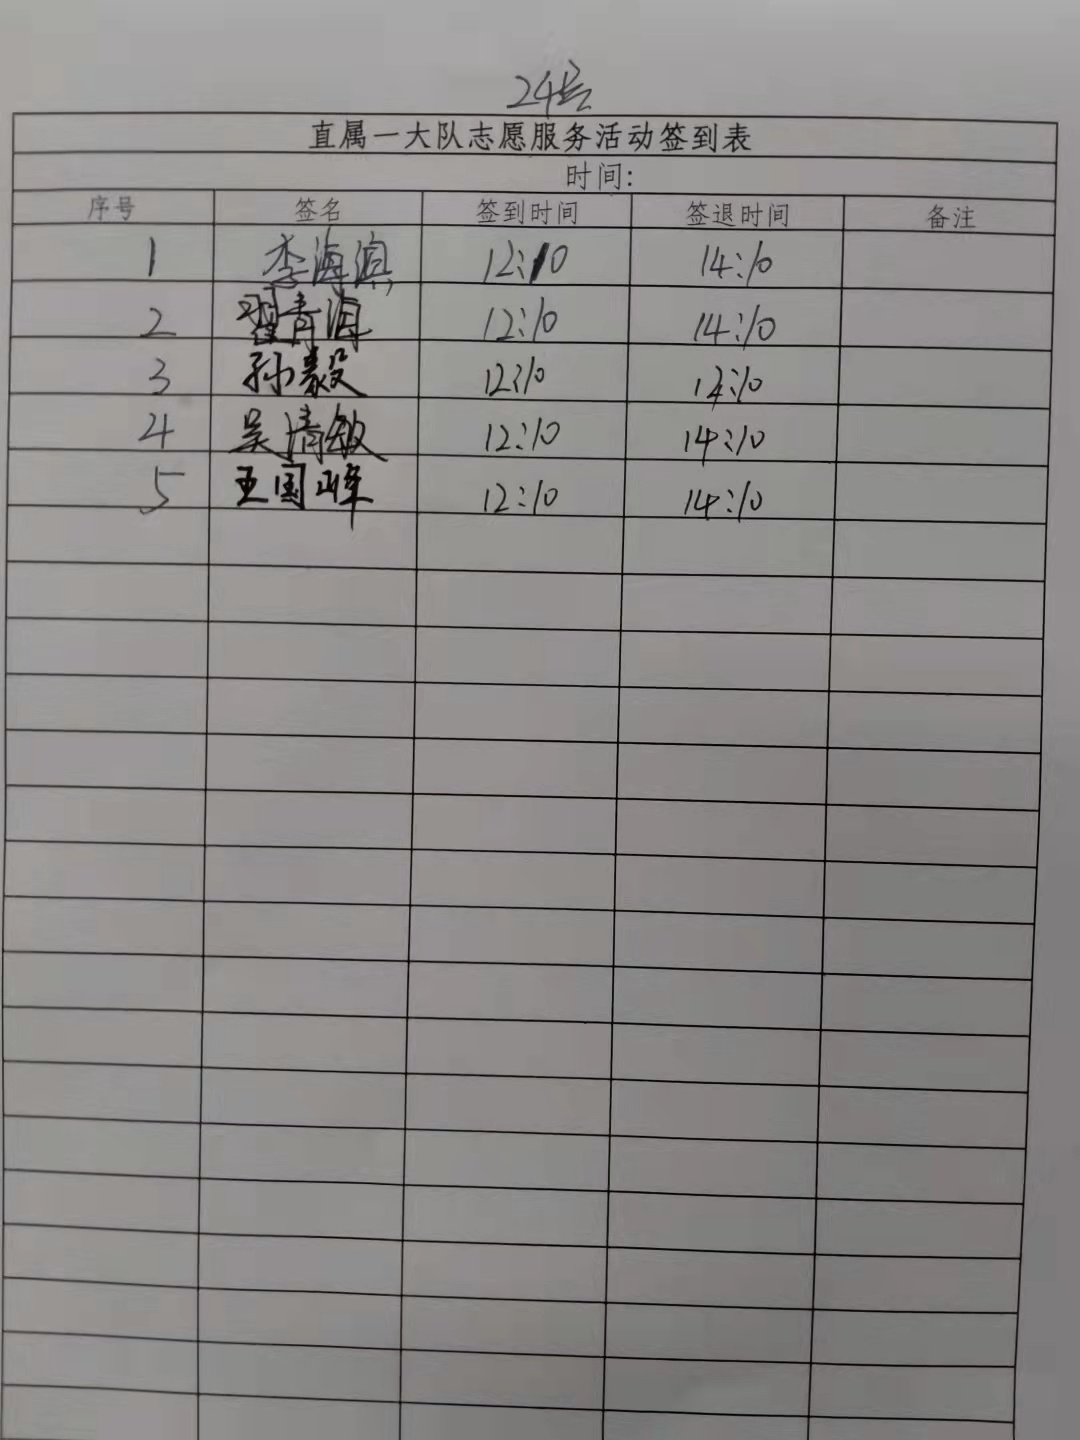 24号
直属一大队志愿服务活动签到表
时间:
序号 签名 签到时间 签退时间 备注
1 李海滨 12:10 14:10
2 翟青海 12:10 14:10
3 孙毅 12:10 14:10
4 吴清敏 12:10 14:10
5 王国峰 12:10 14:10